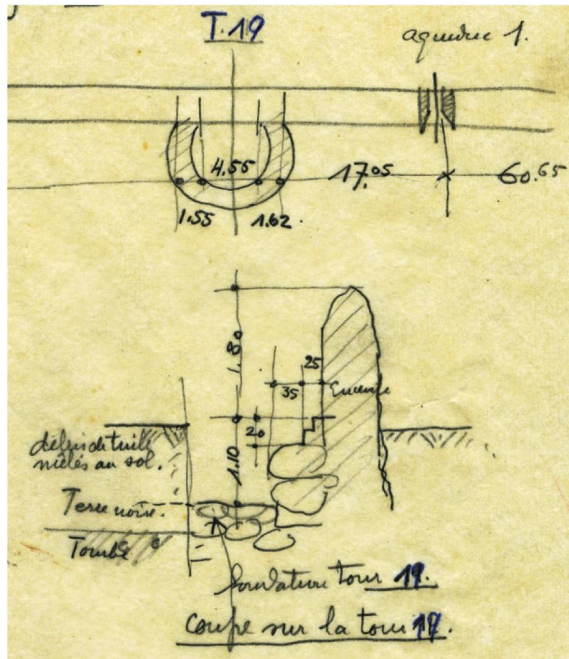 T.19
aqueduc 1.
4.55
17.05
60.65
1.55
1.62
1.80
25
35
Enceinte
20
1.10
débris de tuile
mêlés au sol.
Terre noire.
Tombe
fondation tour 19.
coupe sur la tour 19.